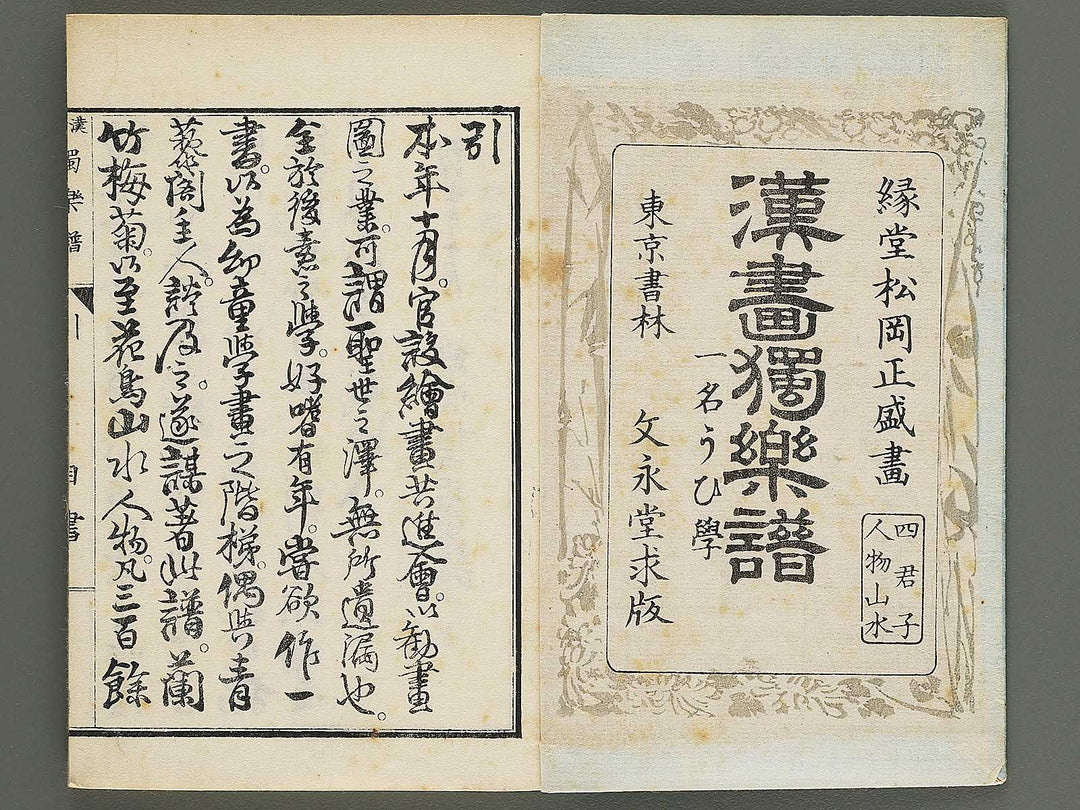 緑堂松岡正盛畫
四君子
人物山水
漢畫獨樂譜
一名うひ學
東京書林　文永堂求版
引
本年十月。官設繪畫共進會。以勸畫
圖之業。可謂聖世之澤。無所遺漏也。
全於後素之學。好嗜有年。嘗欲作一
書。以為幼童學畫之階梯。偶與青
藜閣主人。談及之。遂謀著此譜。蘭
竹梅菊。以至花鳥山水人物。凡三百餘
漢獨樂譜